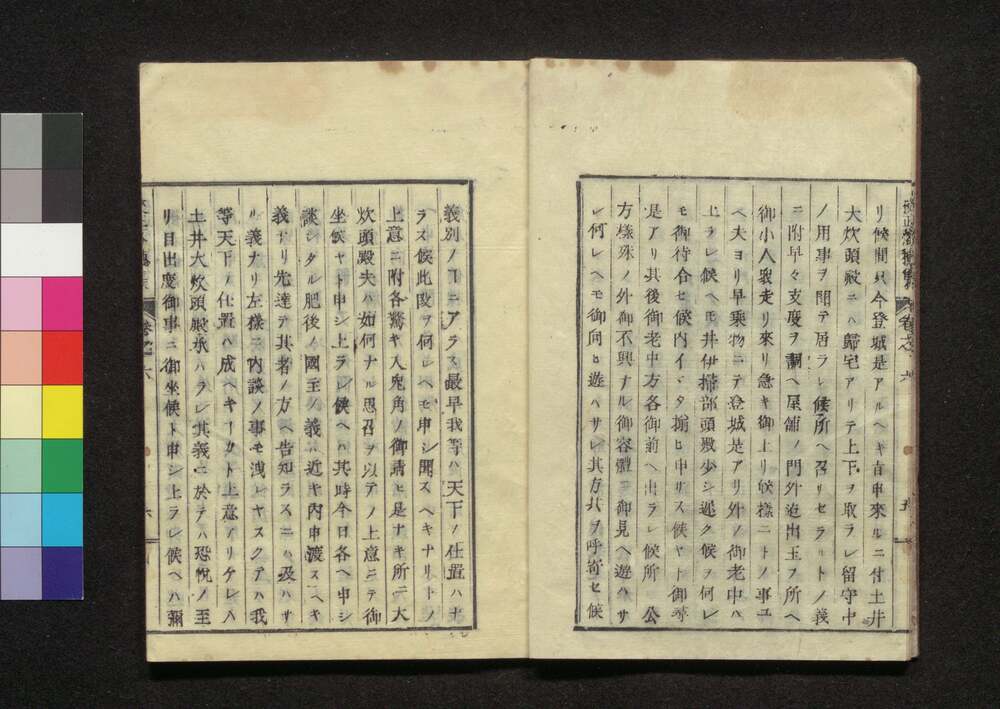 リ候間只今登城是アルヘキ旨申來ルニ付土井
大炊頭殿ニハ歸宅アリテ上下ヲ取ラレ留守中
ノ用事ヲ聞テ居ラレ候所ヘ召リセラルトノ義
ニ附早々支度ヲ調ヘ屋舖ノ門外迄出玉フ所ヘ
御小人衆走リ來リ急キ御上リ候樣ニトノ事ユ
ヘ夫ヨリ早乗物ニテ登城是アリ外ノ御老中ハ
上ラレ候ヘモ井伊掃部頭殿少シ遲ク候ヲ何レ
モ御待合セ候内イマタ揃ヒ申サス候ヤト御尋
是アリ其後御老中方各御前ヘ出ラレ候所 公
方樣殊ノ外御不興ナル御容體ニ御見ヘ遊ハサ
レ何レヘモ御向ヒ遊ハサレ其方共ヲ呼寄セ候
卷之六
五
義別ノコニアラス最早我等ハ天下ノ仕置ハナ
ラス候此段ヲ何レヘモ申シ聞スヘキナリトノ
上意ニ附各驚キ入兎角ノ御請ヒ是ナキ所ニ大
炊頭殿夫ハ如何ナル思召ヲ以テノ上意ニテ御
坐候ヤト申シ上ラレ候ヘハ其時今日各ヘ申シ
談シタル肥後ノ國主ノ義ハ近キ内申渡スヘキ
義ナリ先達テ其者ノ方ヘ告知ラスニハ及ハサ
ル義ナリ左樣ニ内談ノ事モ洩レヤスクテハ我
等天下ノ仕置ハ成ヘキーカト上意アリケレハ
土井大炊頭殿承ハラレ其義ニ於テハ恐悅ノ至
リ目出度御事ニ御坐候ト申シ上ラレ候ヘハ彌
卷之六
六